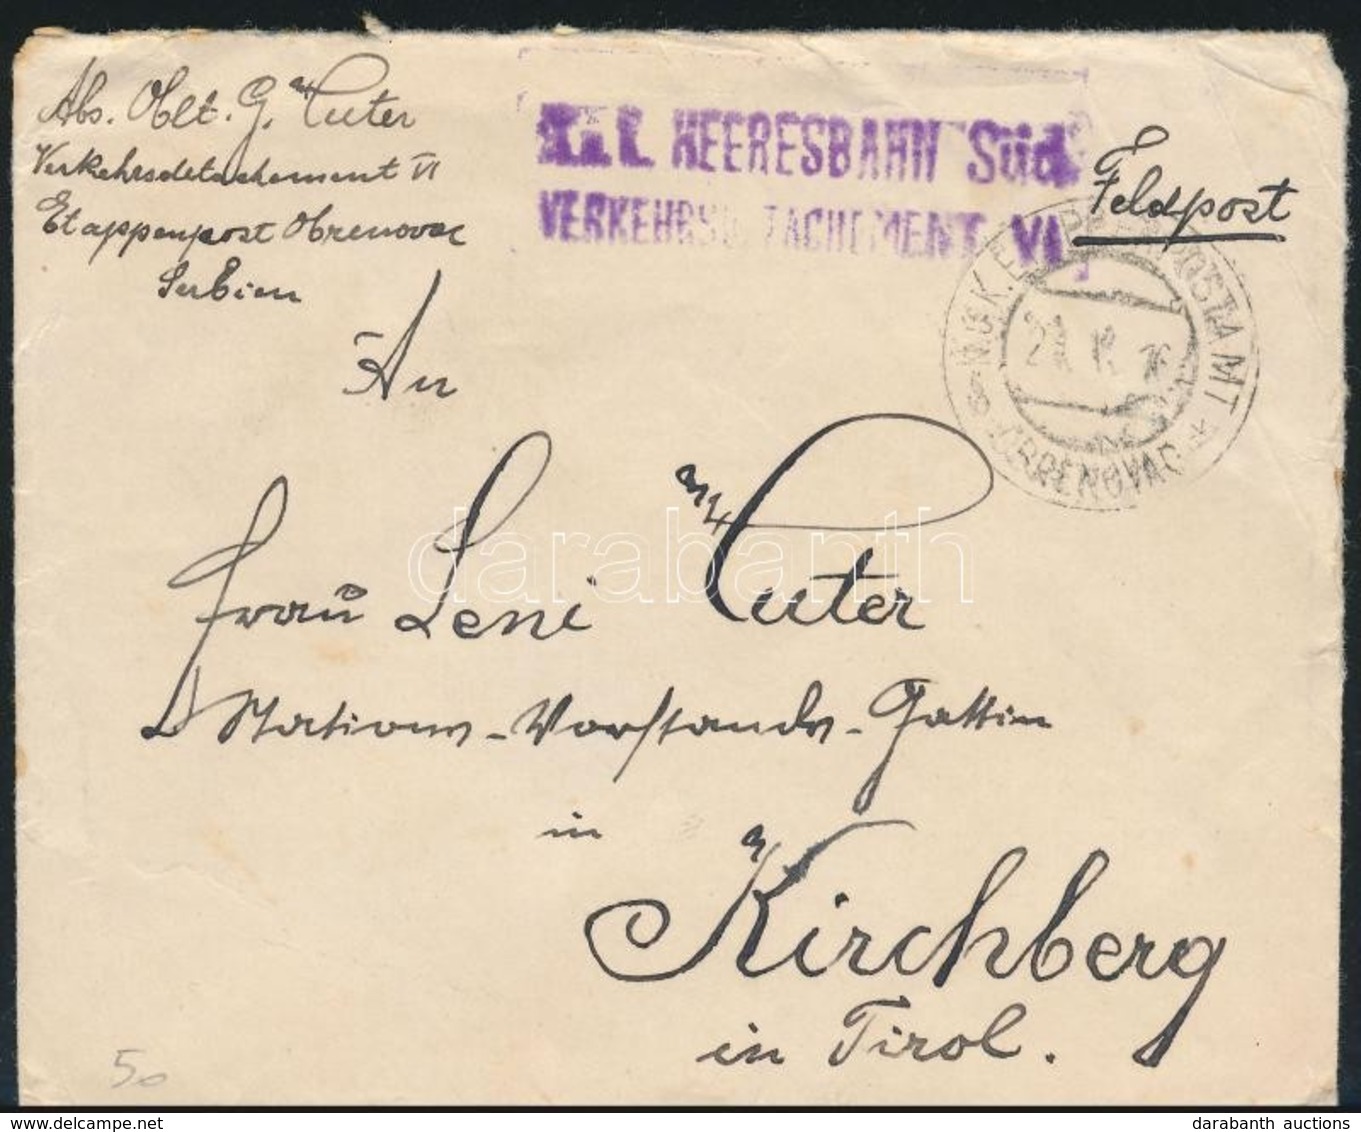 Abs. Oblt. G. Cuter
Verkehrsdetachement VI
Etappenpost Obrenovac
Serbien
K.u.K. HEERESBAHN Süd
VERKEHRSDETACHEMENT VI.
Feldpost
K.u.K. ETAPPENPOSTAMT
OBRENOVAC
An
Frau Leni Cuter
Stations-Vorstands-Gattin
in
Kirchberg
in Tirol.
50
darabanth
darabanth auctions
www.delcampe.net